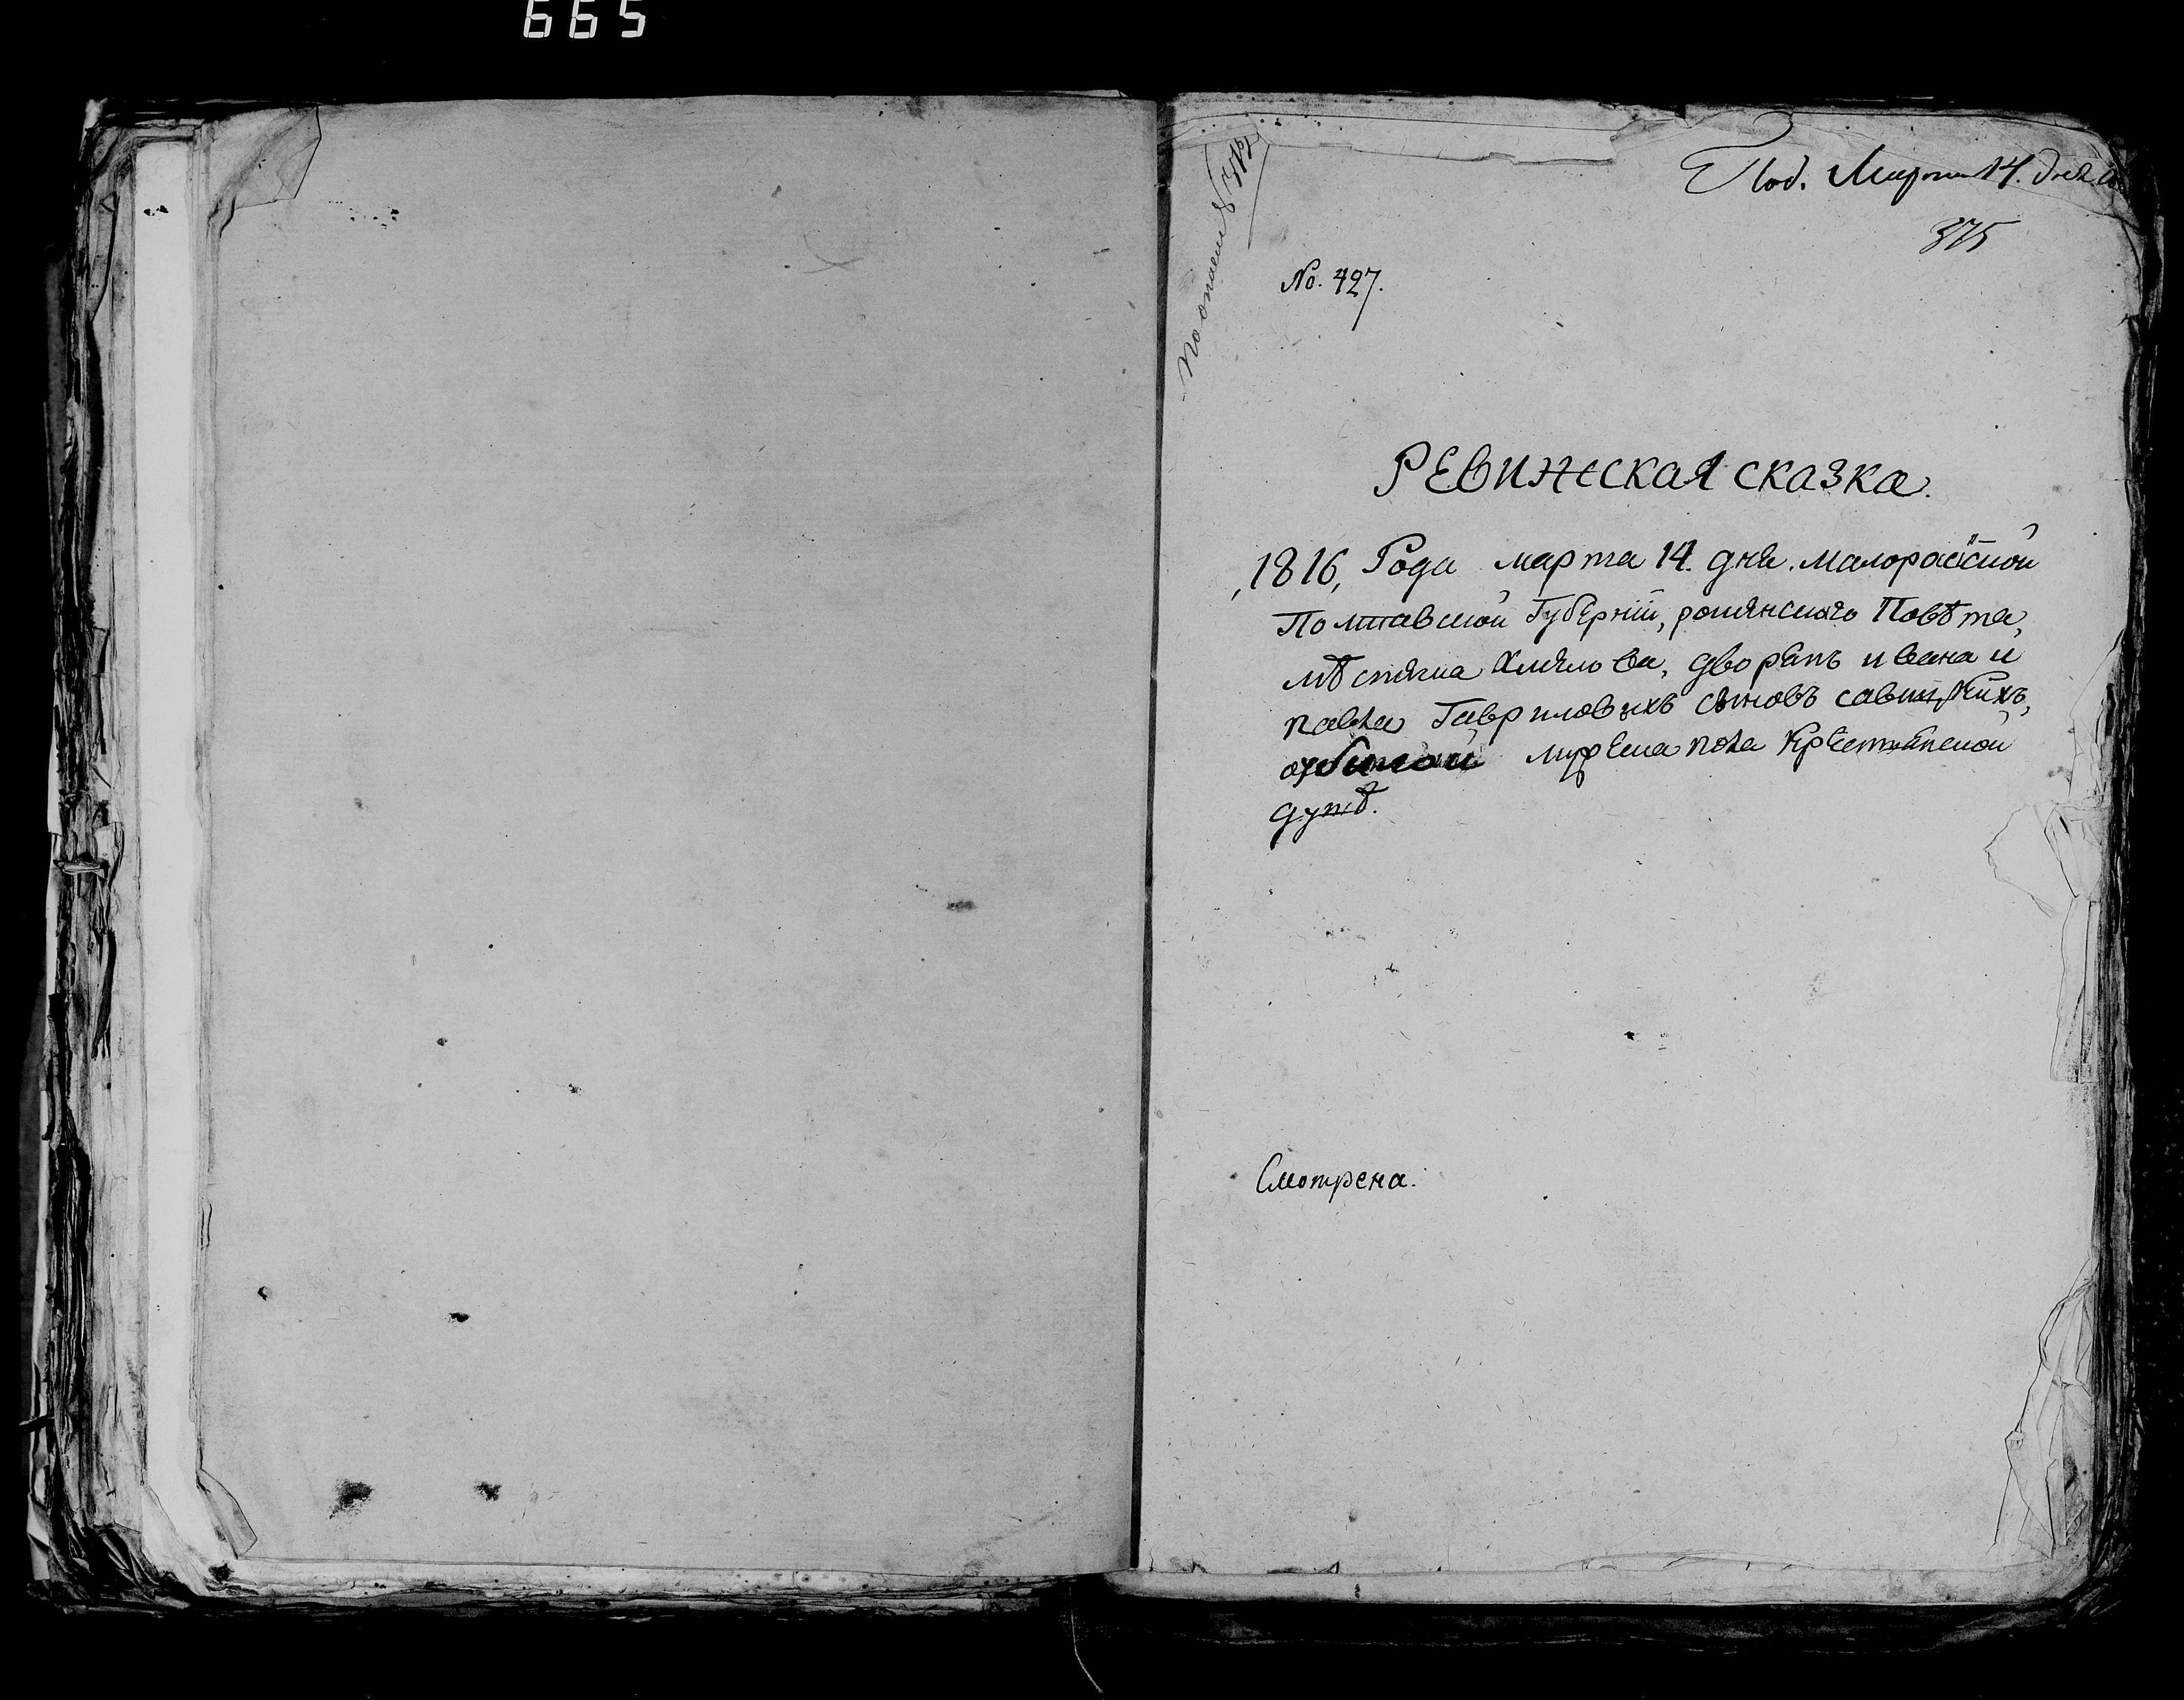 665
Под. Марта 14. дня
375
No. 427.
РЕВИЖСКАЯ СКАЗКА.
1816, Года марта 14. дня. малоросiйской
Полтавской Губернiи, роменского Повѣта,
мѣстечка Хмѣлова, дворянъ ивана и
павла Гавриловыхъ сыновъ савицкихъ,
мужеска пола крестьянской
душѣ.
Смотрена.